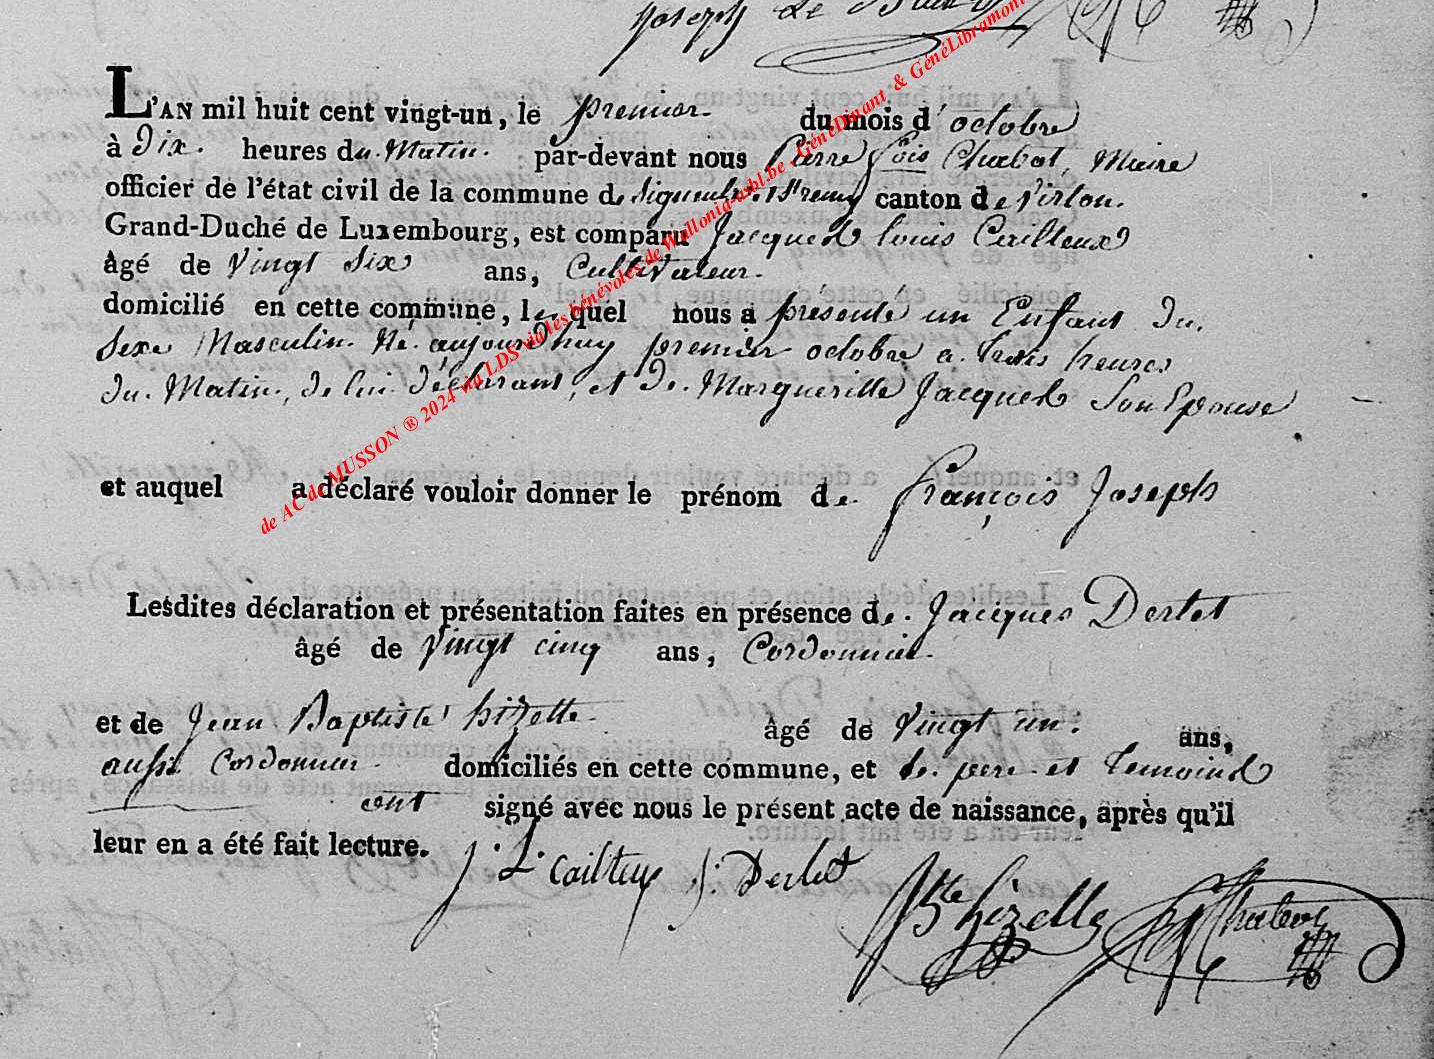 Joseph Le
L'AN mil huit cent vingt-un, le premier du mois d'octobre
à Dix heures du Matin par-devant nous Pierre fois Chabot, Maire
officier de l'état civil de la commune de Signeulx & St remy canton de Virton.
Grand-Duché de Luxembourg, est comparu Jacques louis Cailteux
âgé de Vingt Six ans, Cultivateur.
domicilié en cette commune, lequel nous a présenté un Enfant du
Sexe Masculin Né aujourdhuy premier octobre a trois heures
du Matin, de lui déclarant, et de Margueritte Jacques Son Epouse
et auquel a déclaré vouloir donner le prénom de françois Joseph
Lesdites déclaration et présentation faites en présence de Jacques Derlet
âgé de Vingt cinq ans, Cordonnier.
et de Jean Baptiste hizette âgé de Vingt un. ans,
aussi Cordonnier domiciliés en cette commune, et le pere et temoins
ont signé avec nous le présent acte de naissance, après qu'il
leur en a été fait lecture.
J. L. Cailteux J. Derlet JBte hizette Chabot
de AC de MUSSON ® 2024 via LDS via les bénévoles de Wallonia-asbl.be - GénéDinant & GénéLibramont